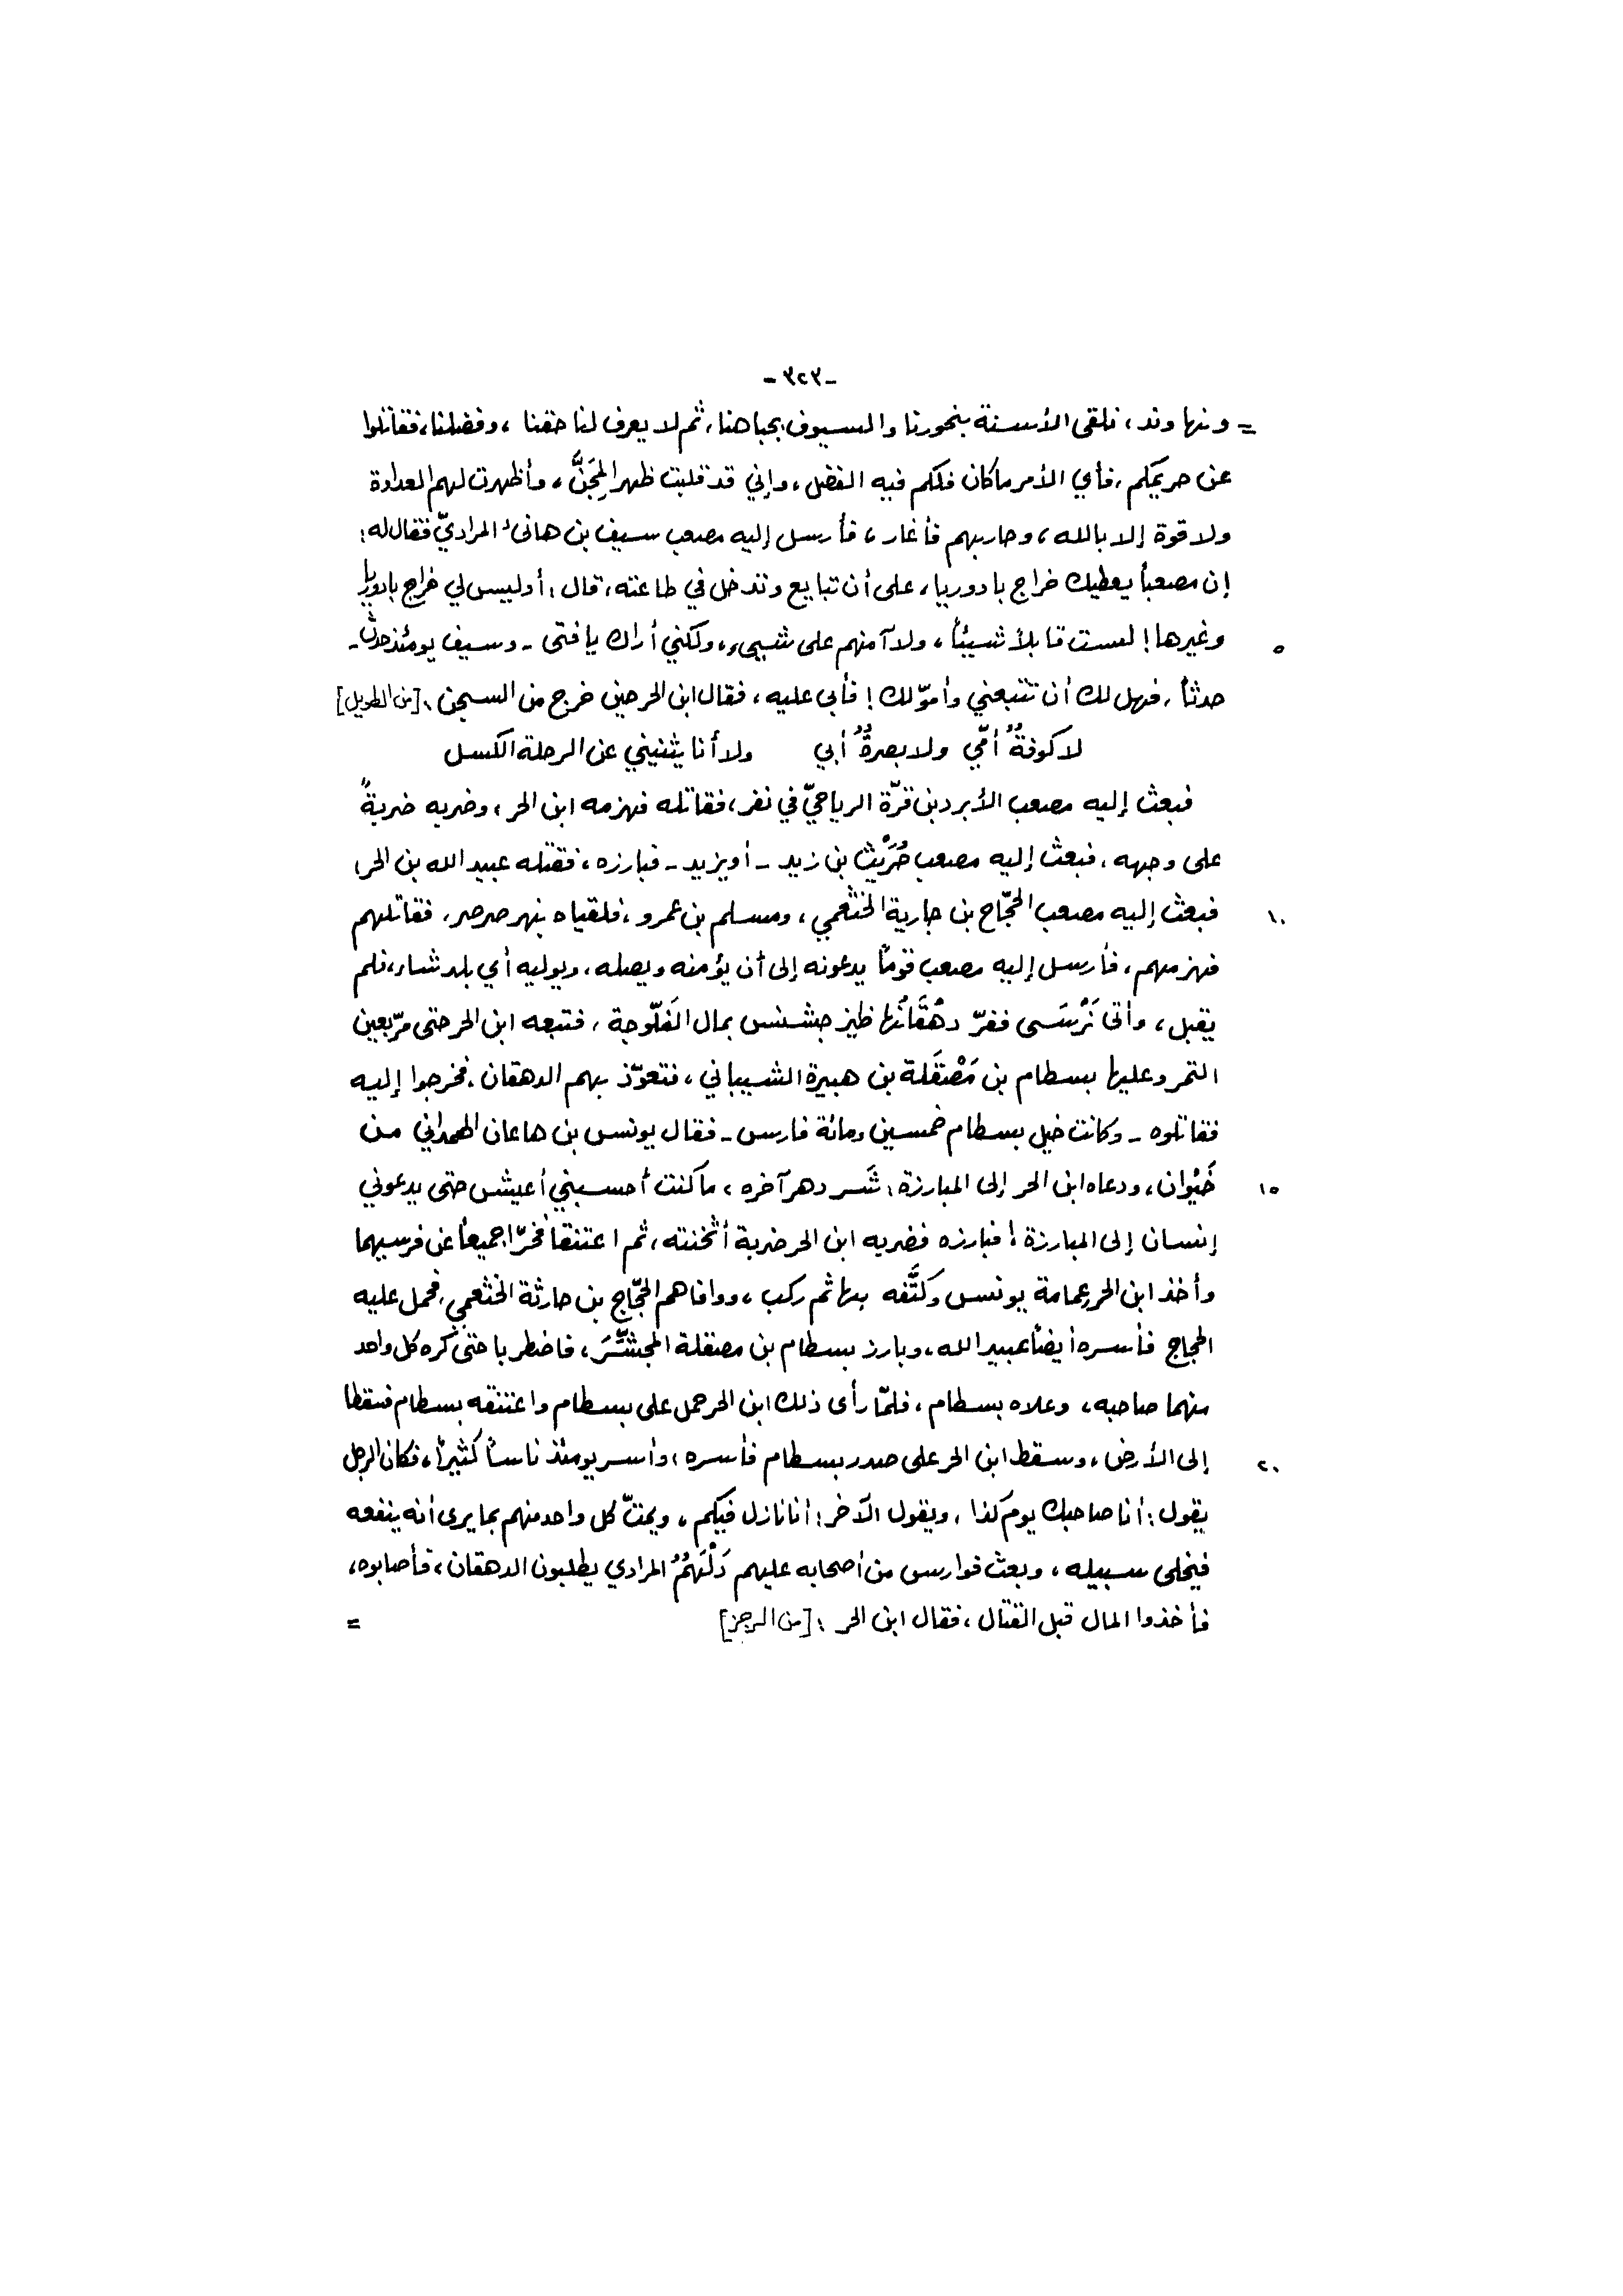 -٣٢٣-
= ونهاوند، نلقى الأسنة بنحورنا والسيوف بجباهنا، ثم لا يعرف لنا حقنا، وفضلنا، فقاتلوا
عن حريمكم، فأي الأمر ما كان فلكم فيه الفضل، وإني قد قلبت ظهر المِجَنَّ، وأظهرت لهم العداوة
ولا قوة إلا بالله، وحاربهم فأغار، فأرسل إليه مصعب سيف بن هانئ المراديّ فقال له:
إن مصعباً يعطيك خراج بادوريا، على أن تبايع وتدخل في طاعته، قال: أوليس لي خراج بادوريا
وغيرها! لست قابلاً شيئاً، ولا آمنهم على شيىء، ولكني أراك يا فتى - وسيف يومئذ حدث -
٥
حدثاً، فهل لك أن تتبعني وأموّلك! فأبى عليه، فقال ابن الحر حين خرج من السجن: [من الطويل]
لا كوفةٌ أمّي ولا بصرةٌ أبي ولا أنا يثنيني عن الرحلة الكسل
فبعث إليه مصعب الأبرد بن قرّة الرياحيّ في نفر، فقاتله فهزمه ابن الحر، وضربه ضربةً
على وجهه، فبعث إليه مصعب حُرَيْث بن زيد - أو يزيد - فبارزه، فقتله عبيد الله بن الحر،
فبعث إليه مصعب الحجّاج بن جارية الخثعمي، ومسلم بن عمرو، فلقياه بنهر صرصر، فقاتلهم
١٠
فهزمهم، فأرسل إليه مصعب قوماً يدعونه إلى أن يؤمنه ويصله، ويوليه أي بلد شاء، فلم
يقبل، وأتى نَرْسَى ففرّ دهْقَانُها ظيز جشنس بمال الفَلّوجة، فتبعه ابن الحر حتى مرّ بعين
التمر وعليها بسطام بن مَصْقَلة بن هبيرة الشيباني، فتعوّذ بهم الدهقان، فخرجوا إليه
فقاتلوه - وكانت خيل بسطام خمسين ومائة فارس - فقال يونس بن هاعان الهمداني من
خَيْوان، ودعاه ابن الحر إلى المبارزة: شَر دهر آخره، ما كنت أحسبني أعيش حتى يدعوني
١٥
إنسان إلى المبارزة! فبارزه فضربه ابن الحر ضربة أثخنته، ثم اعتنقا فخرّا جميعاً عن فرسيهما
وأخذ ابن الحر عمامة يونس وكَتَّفه بها ثم ركب، ووافاهم الحجّاج بن حارثة الخثعمي، فحمل عليه
الحجاج فأسره أيضاً عبيد الله، وبارز بسطام بن مصقلة المجشَّرَ، فاضطربا حتى كره كل واحد
منهما صاحبه، وعلاه بسطام، فلمّا رأى ذلك ابن الحر حمل على بسطام واعتنقه بسطام فسقطا
إلى الأرض، وسقط ابن الحر على صدر بسطام فأسره، وأسر يومئذ ناساً كثيراً، فكان الرجل
٢٠
يقول: أنا صاحبك يوم كذا، ويقول الآخر: أنا نازل فيكم، ويمتّ كل واحد منهم بما يرى أنه ينفعه
فيخلى سبيله، وبعث فوارس من أصحابه عليهم دَلْهَمُ المرادي يطلبون الدهقان، فأصابوه،
فأخذوا المال قبل القتال، فقال ابن الحر: [من الرجز] =